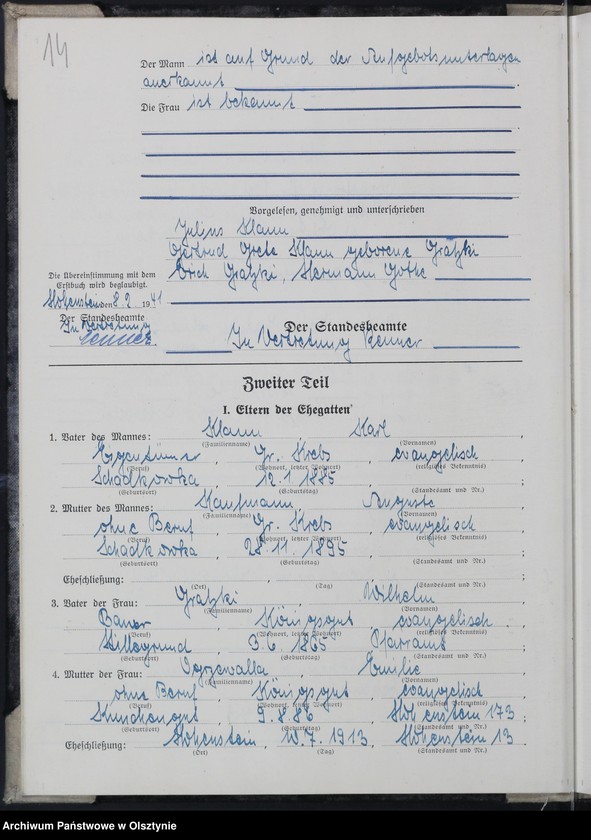 14
Der Mann ist auf Grund der Aufgebotsunterlagen
anerkannt
Die Frau ist bekannt
Vorgelesen, genehmigt und unterschrieben
Julius Klann
Gertrud Grete Klann geborene Gratzki
Erich Gratzki, Hermann Gotte
Die Übereinstimmung mit dem
Erstbuch wird beglaubigt.
Hohenstein den 8.2. 1941
Der Standesbeamte
In Vertretung
Renner
Der Standesbeamte
In Vertretung Renner
Zweiter Teil
I. Eltern der Ehegatten
1. Vater des Mannes: Klann Karl ,
(Familienname) (Vornamen)
Eigentümer , Gr. Krebs , evangelisch
(Beruf) (Wohnort, letzter Wohnort) (religiöses Bekenntnis)
Schadkowka , 12.1.1885 , ;
(Geburtsort) (Geburtstag) (Standesamt und Nr.)
2. Mutter des Mannes: Kaufmann Auguste ,
(Familienname) (Vornamen)
ohne Beruf , Gr. Krebs , evangelisch
(Beruf) (Wohnort, letzter Wohnort) (religiöses Bekenntnis)
Schadkowka , 28.11.1895 , ;
(Geburtsort) (Geburtstag) (Standesamt und Nr.)
Eheschließung: , , ;
(Ort) (Tag) (Standesamt und Nr.)
3. Vater der Frau: Gratzki Wilhelm ,
(Familienname) (Vornamen)
Bauer , Königsgut , evangelisch
(Beruf) (Wohnort, letzter Wohnort) (religiöses Bekenntnis)
, 3.6.1865 , Pfarramt ;
(Geburtsort) (Geburtstag) (Standesamt und Nr.)
4. Mutter der Frau: Emilie ,
(Familienname) (Vornamen)
ohne Beruf , Königsgut , evangelisch
(Beruf) (Wohnort, letzter Wohnort) (religiöses Bekenntnis)
, 9.8.86 , Hohenstein 173 ;
(Geburtsort) (Geburtstag) (Standesamt und Nr.)
Eheschließung: Hohenstein , 10.7.1913 , Hohenstein 13 .
(Ort) (Tag) (Standesamt und Nr.)
Archiwum Państwowe w Olsztynie